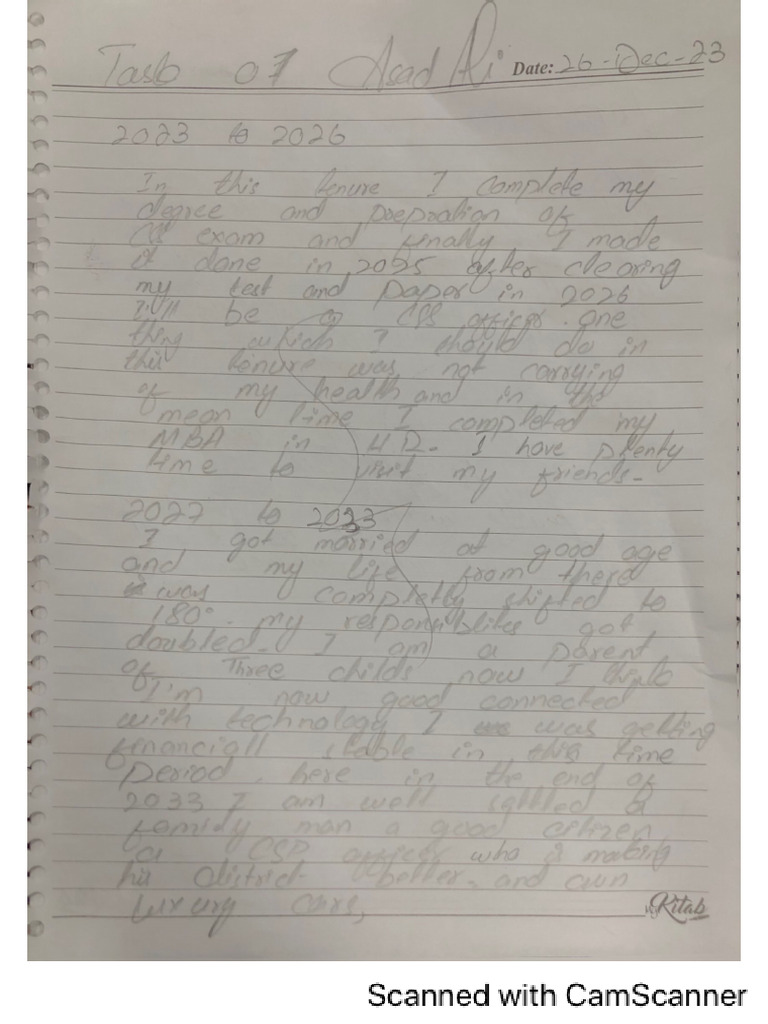 Task 07 Asad Ali Date: 26-Dec-23
2023 to 2026
In this tenure I complete my
degree and prepration of
CSS exam and finally I made
it done in 2025 after clearing
my test and paper in 2026
I'll be a CSS officer. one
thing which I should do in
this tenure was not carrying
of my health and in the
mean time I completed my
MBA in HR. I have plenty
time to visit my friends.
2027 to 2033
I got married at good age
and my life from there
was completly shifted to
180°. my responsiblites got
doubled. I am a parent
of Three childs now I think
I'm now good connected
with technology I was getting
financiall stable in this time
Period. here in the end of
2033 I am well settled a
family man a good citizen
a CSP officer who is making
his district better. and own
luxury cars,
my Kitab
Scanned with CamScanner